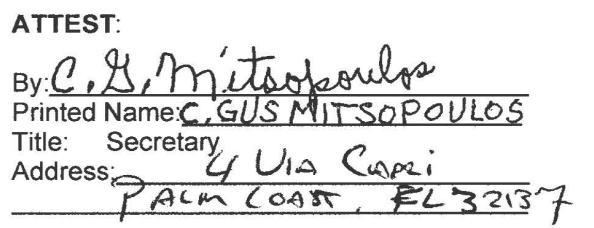 ATTEST:
By: C. G. Mitsopoulos
Printed Name: C. GUS MITSOPOULOS
Title: Secretary
Address: 4 VIA CAPRI
PALM COAST, FL 32137